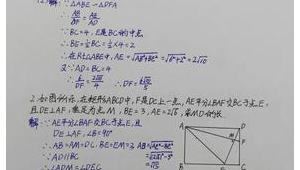 (2) 解: ∵△ABE∽△DFA
∴ AB/DF = AE/AD
∵BC=4, E是BC的中点
∴BE=½BC=½×4=2
∴在Rt△ABE中, AE=√AB²+BE²=√6²+2²=2√10
又∵AD=BC=4
∴ 6/DF=2√10/4 ∴DF=
2. 如图所示, 在矩形ABCD中, F是DC上一点, AE平分∠BAF交BC于点E,
且DE⊥AF, 垂足为点M, BE=3, AE=2√6, 求MD的长.
解: ∵AE平分∠BAF交BC于点E, 且
DE⊥AF, ∠B=90°
∴AB=AM=DC, BE=EM=3, AB=√AE²-BE²
∵AD∥BC
∴∠ADM=∠DEC
A
D
M
F
B
E
C